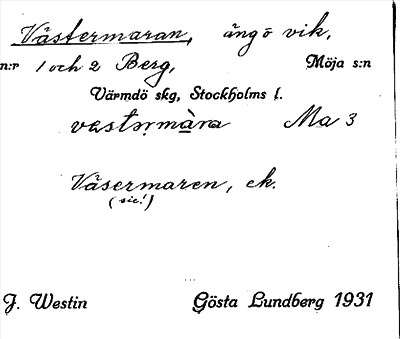 Västermaran, ängö vik,
n:r 1 och 2 Berg, Möja s:n
Värmdö skg, Stockholms l.
vestərmàra Ma 3
Väsermaren, ek.
(sic!)
J. Westin Gösta Lundberg 1931